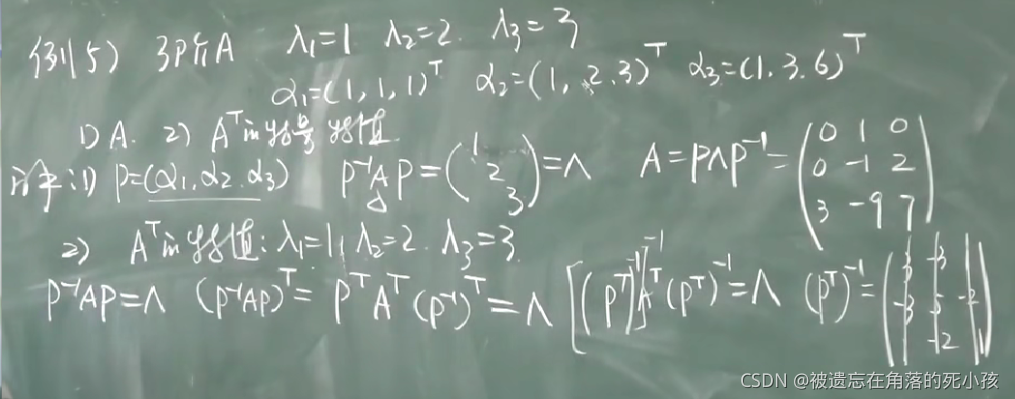 例5) 3阶A λ₁=1 λ₂=2. λ₃=3
α₁=(1,1,1)ᵀ α₂=(1,2.3)ᵀ α₃=(1.3.6)ᵀ
1) A. 2) Aᵀ的特量 特值
解:1) P=(α₁,α₂.α₃) P⁻¹AP=(1 2 3)=Λ A=PΛP⁻¹=(0 1 0
0 -1 2
3 -9 7)
2) Aᵀ的特值:λ₁=1, λ₂=2. λ₃=3.
P⁻¹AP=Λ (P⁻¹AP)ᵀ=PᵀAᵀ(P⁻¹)ᵀ=Λ [(Pᵀ)⁻¹]⁻¹Aᵀ(Pᵀ)⁻¹=Λ (Pᵀ)⁻¹=(3 -3 1
-3 5 -2
1 -2 1)
CSDN @被遗忘在角落的死小孩